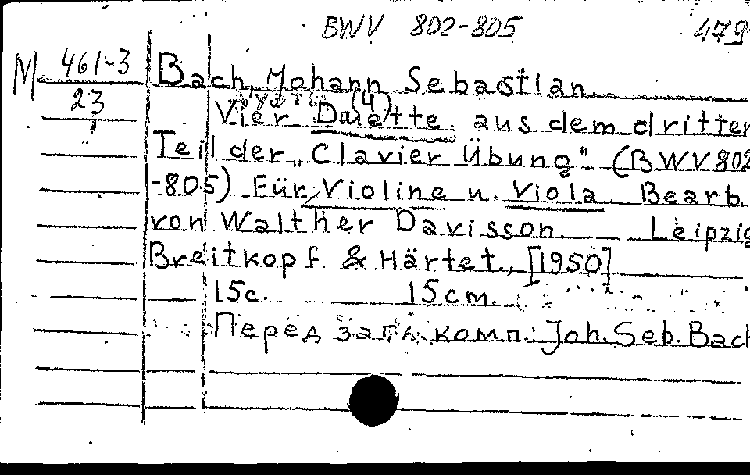 BWV 802-805 479
M 461-3 Bach, Johann Sebastian
23 Vier Duette (4) aus dem dritten
Teil der „Clavier Übung" (BWV 802
-805) Für Violine u. Viola Bearb.
von Walther Davisson. Leipzig
Breitkopf & Härtet., [1950]
15c. 15cm.
Перед загл. комп.: Joh. Seb. Bach